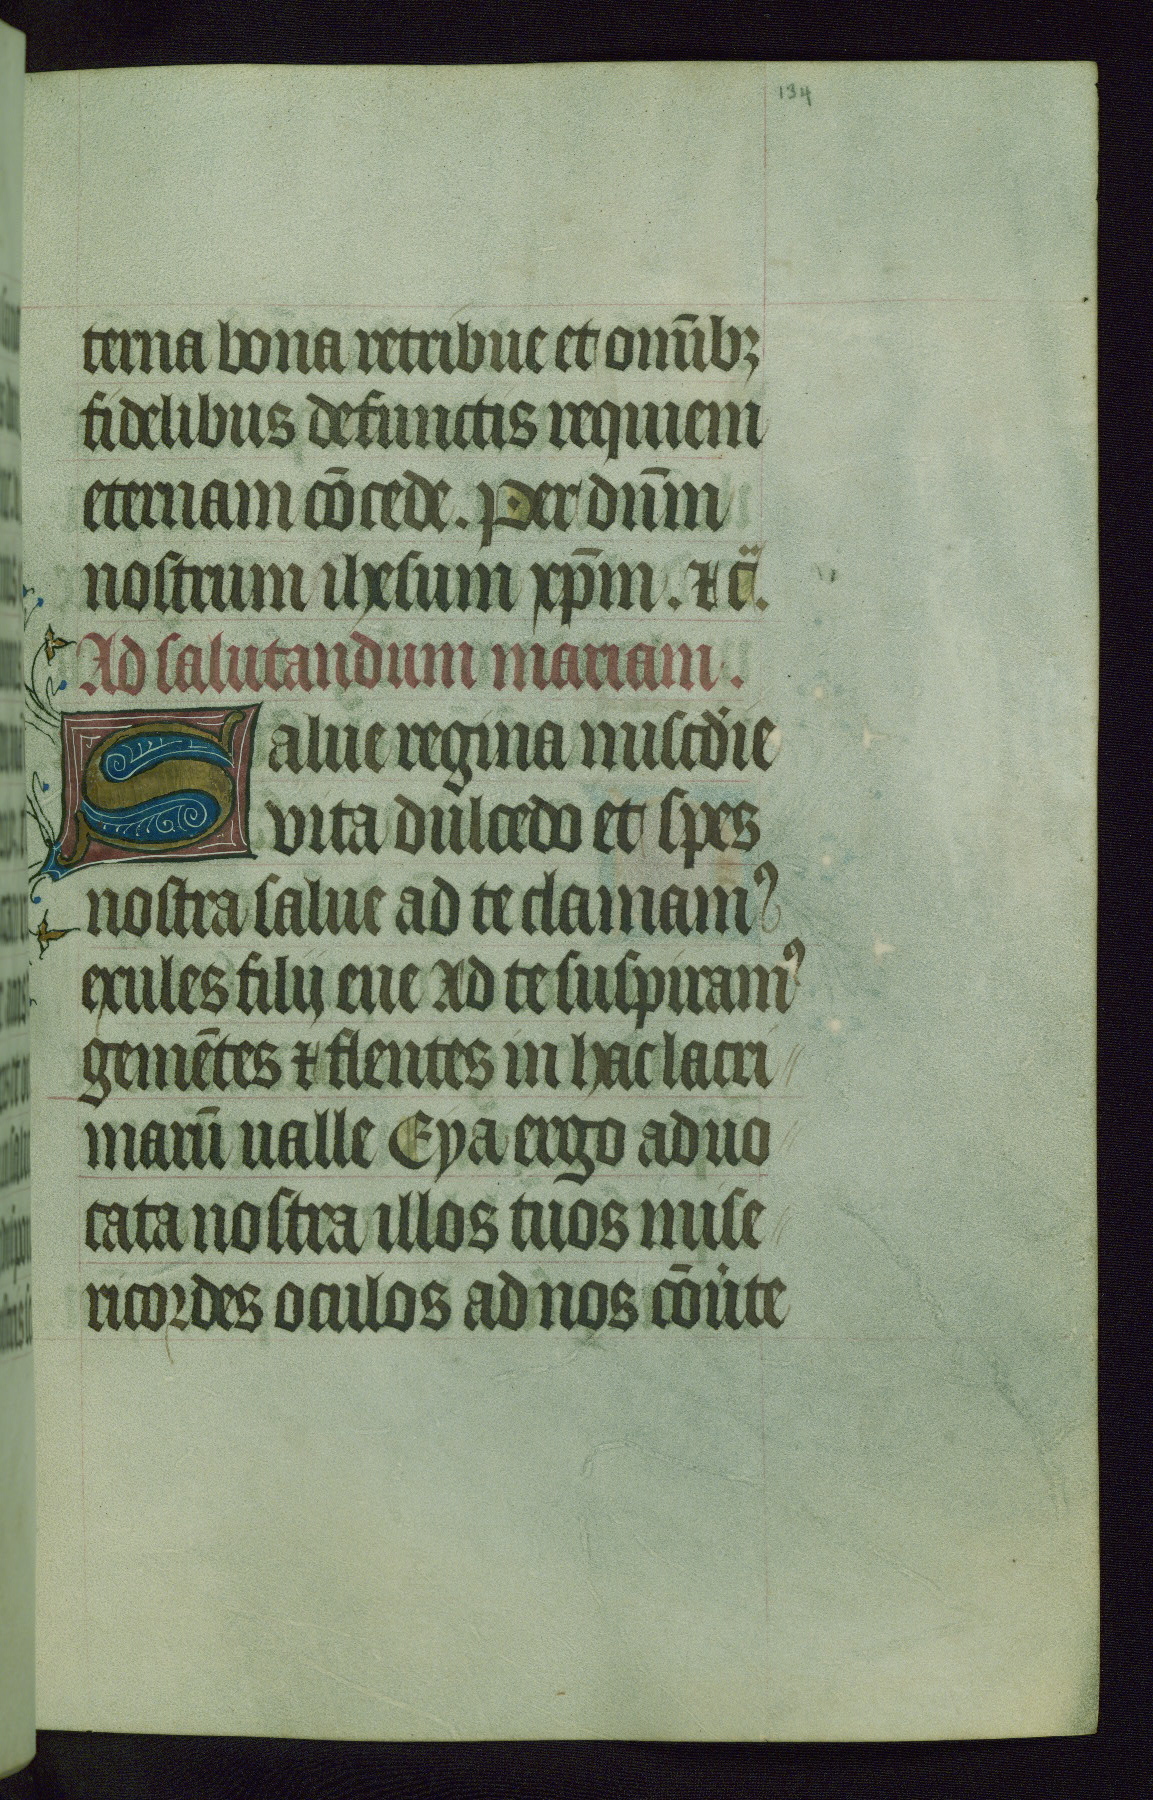 134
terna bona retribue et om̄ībꝫ
fidelibus defunctis requiem
eternam cōcede. Per dn̄m
nostrum ihesum xp̄m. ⁊ c̈.
Ad salutandum mariam.
Salue regina miscd̓ie
vita dulcedo et spes
nostra salue ad te clamamꝰ
exules filij eue Ad te suspiramꝰ
gemētes ⁊ flentes in hac lacri
marū ualle Eya ergo aduo
cata nostra illos tuos mise
ricordes oculos ad nos cōu̇te